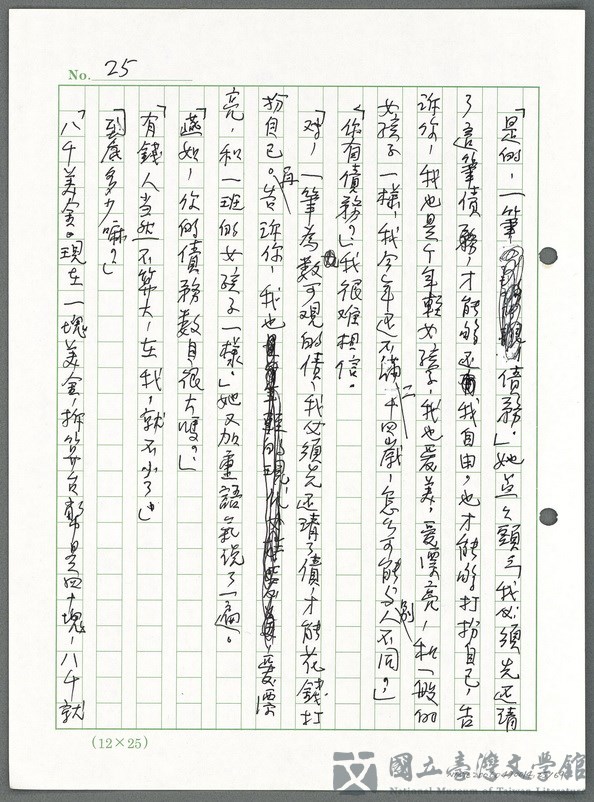 No. 25
「是的，一筆債務。」她点々頭：「我必須先还清
了這筆債務，才能夠还我自由。也才能夠打扮自己，告
訴你，我也是个年輕女孩子，我也爱美，爱漂亮，和一般的
女孩子一樣，我今年还不滿二十四歲，怎么可能与別人不同？」
「你有債務？」我很难相信。
「对，一筆為数可观的債，我必須先还清了債，才能花錢打
扮自己。再告訴你，我也爱漂
亮，和一班的女孩子一樣。」她又加重語氣说了一遍。
「燕如，你的債務数目很大嗎？」
「有錢人当然不算大，在我，就不少了」
「到底多少嘛？」
「八千美金。現在一塊美金，折算台幣是四十塊，八千就
(12×25)
國立臺灣文學館
National Museum of Taiwan Literature